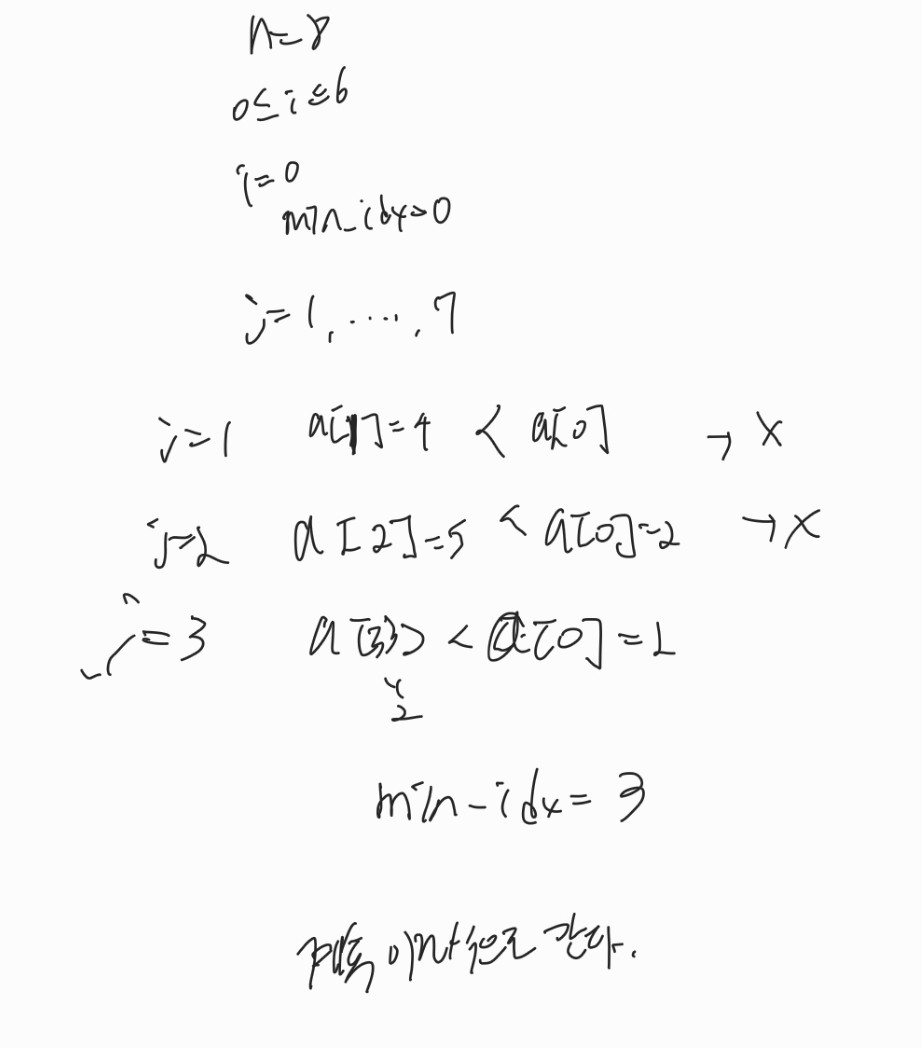 n=8
0≤i≤6
i=0
min_idx=0
j=1, ...., 7
j=1 a[1]=4 < a[0] → X
j=2 a[2]=5 < a[0]=2 → X
j=3 a[3] < a[0]=2
min-idx=3
계속 이런식으로 간다.